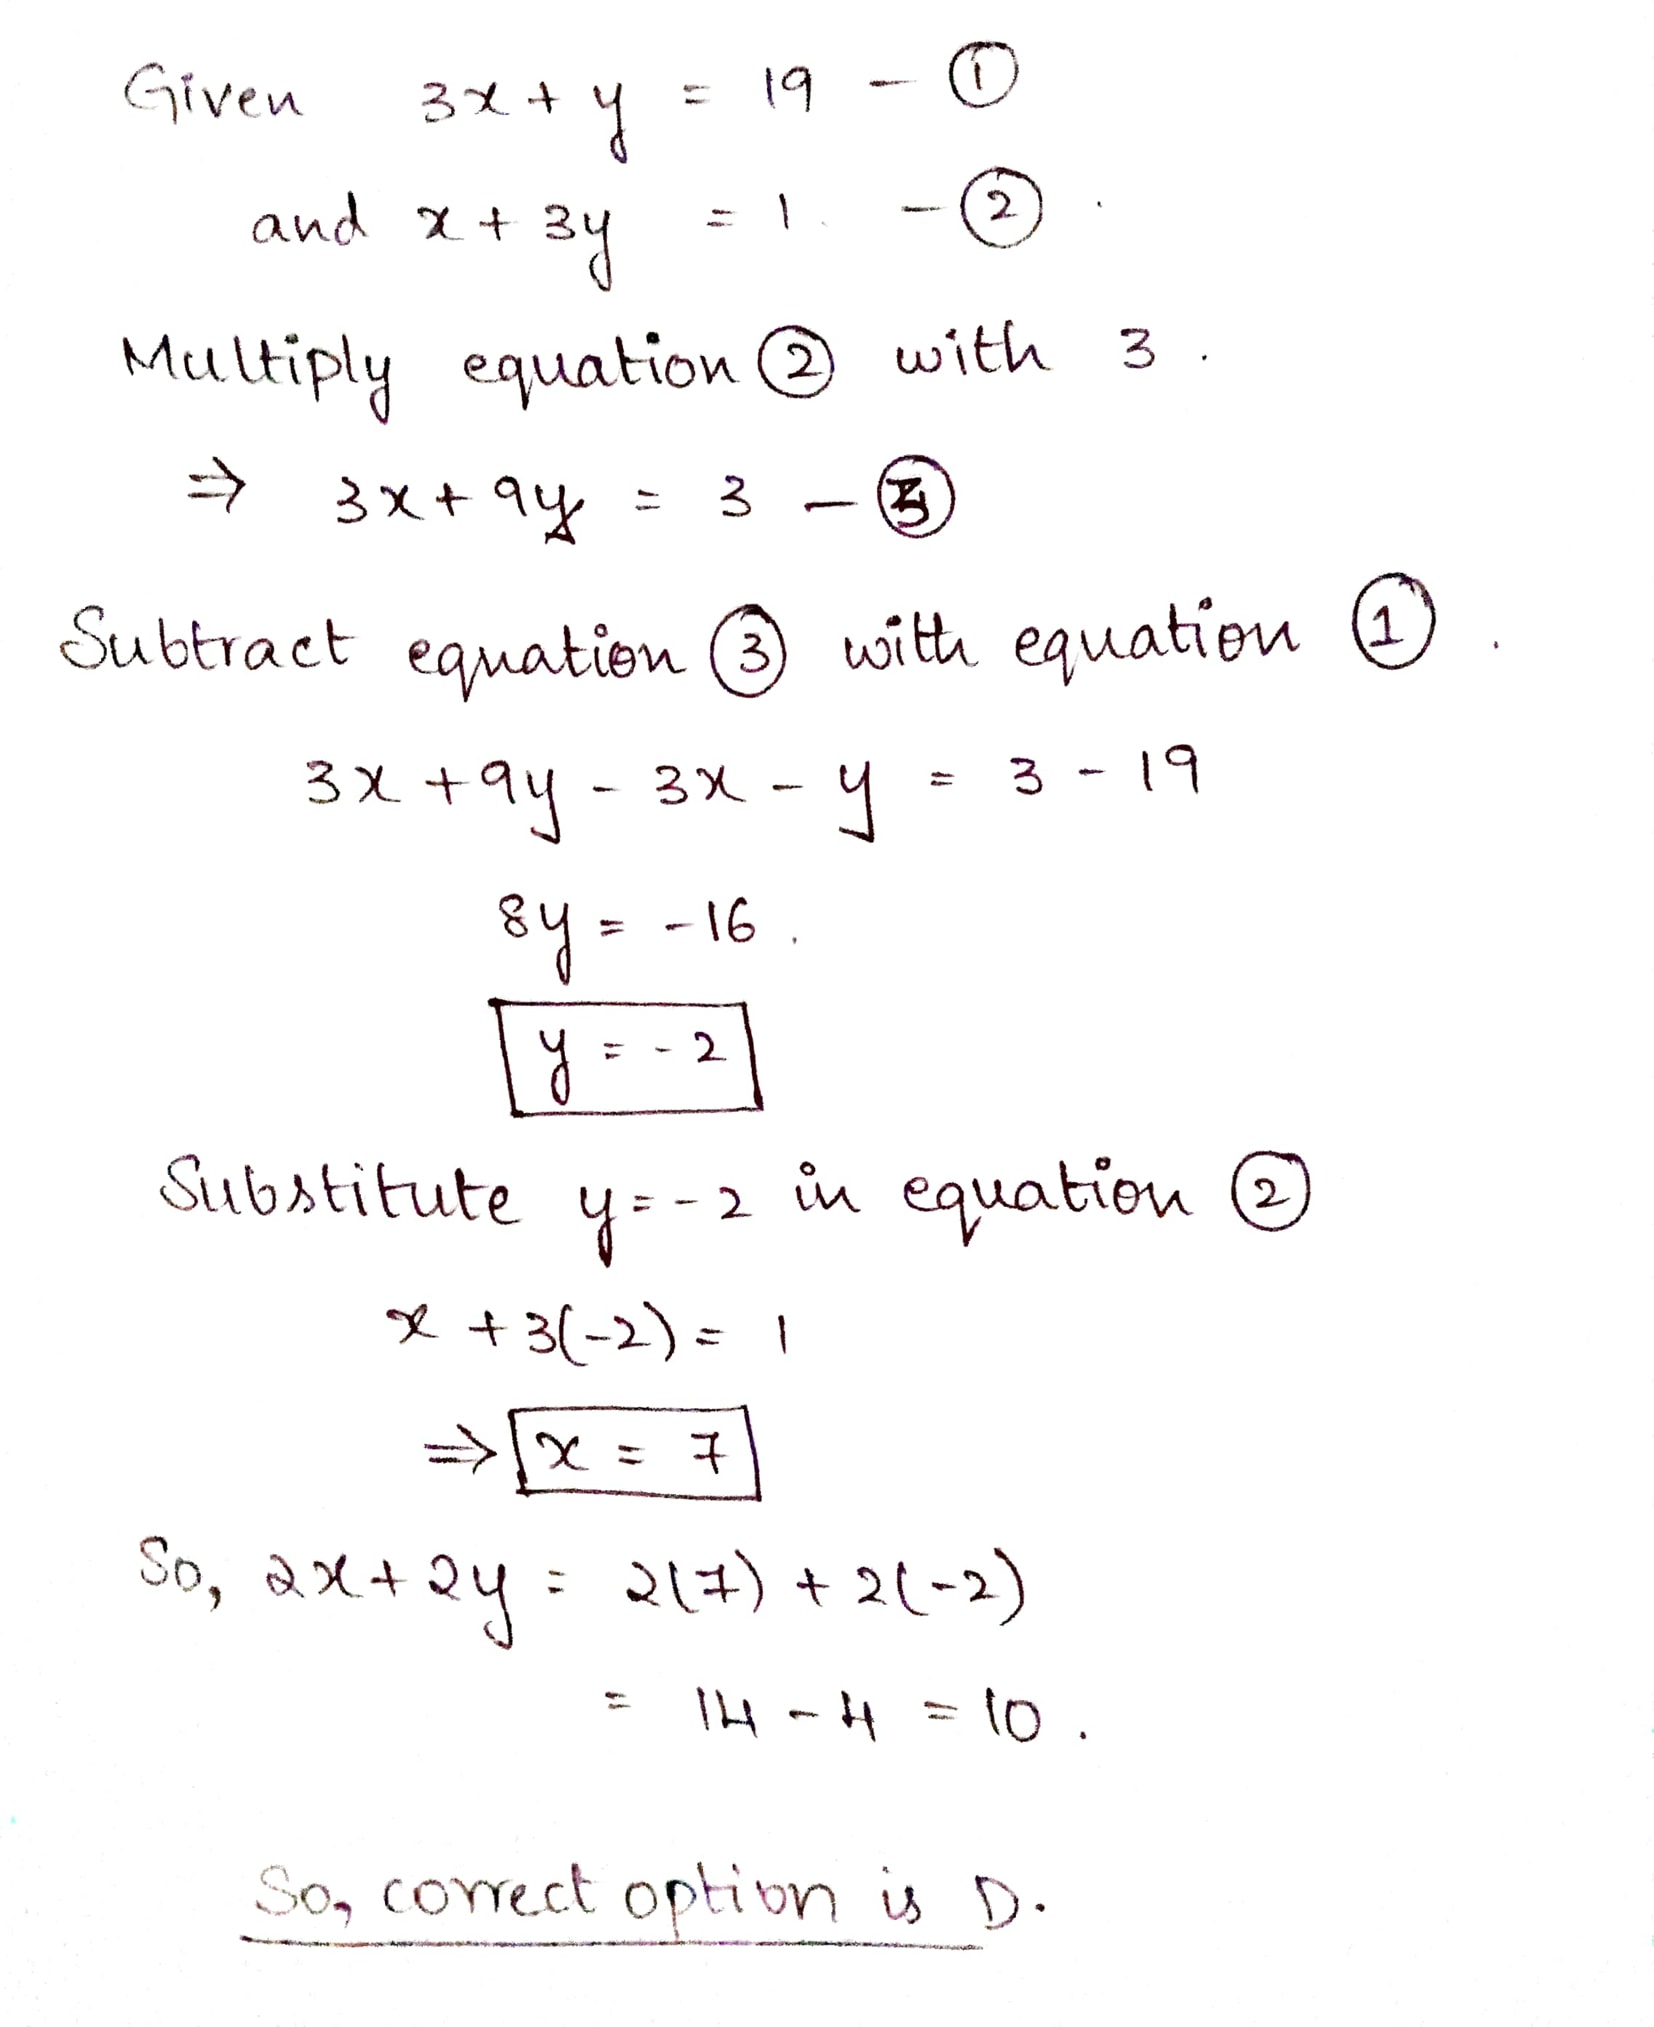 Given 3x + y = 19 - ①
and x + 3y = 1. - ② .
Multiply equation ② with 3 .
⇒ 3x + 9y = 3 - ③
Subtract equation ③ with equation ① .
3x + 9y - 3x - y = 3 - 19
8y = -16 .
y = -2
Substitute y = -2 in equation ②
x + 3(-2) = 1
⇒ x = 7
So, 2x + 2y = 2(7) + 2(-2)
= 14 - 4 = 10 .
So, correct option is D.